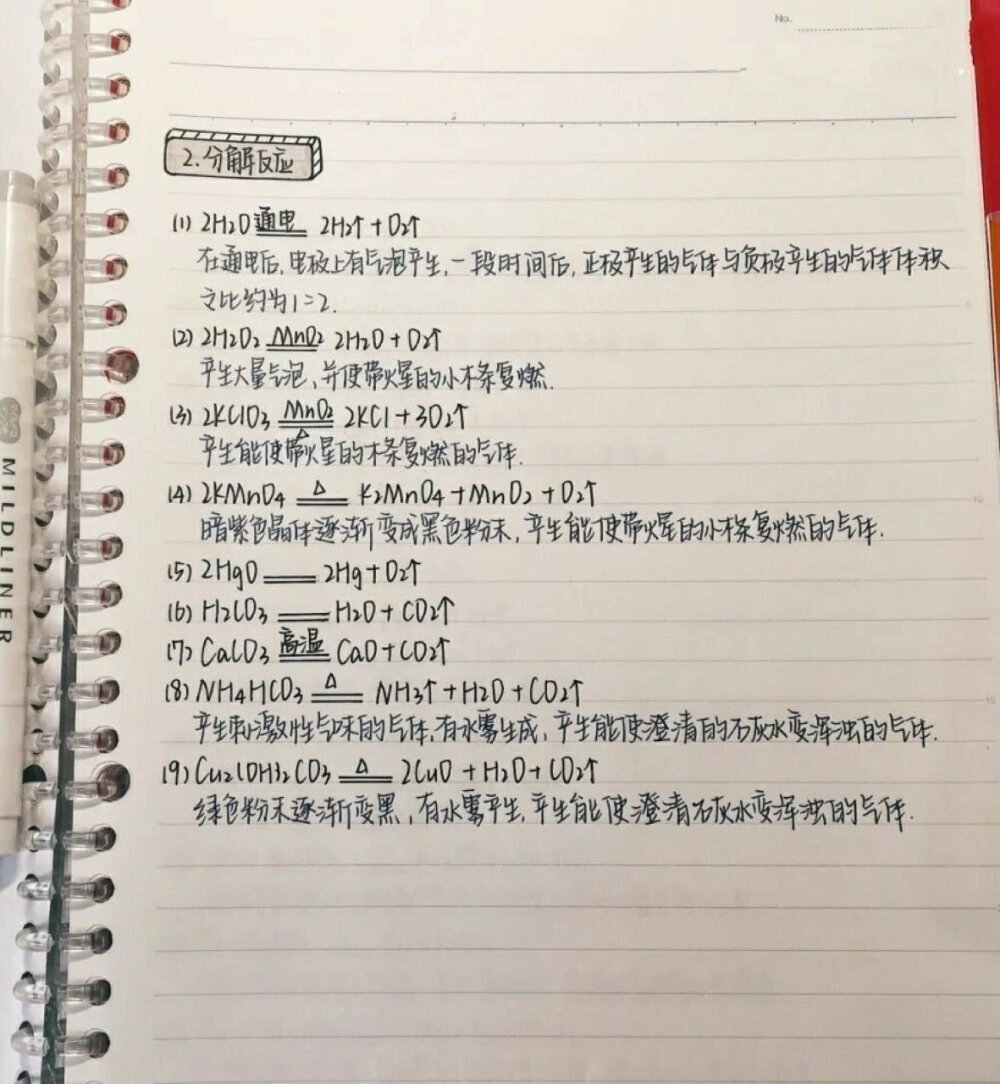 No.
2.分解反应
(1) 2H₂O 通电 2H₂↑ + O₂↑
在通电后,电极上有气泡产生,一段时间后,正极产生的气体与负极产生的气体体积
之比约为1:2.
(2) 2H₂O₂ MnO₂ 2H₂O + O₂↑
产生大量气泡,并使带火星的小木条复燃.
(3) 2KClO₃ MnO₂ △ 2KCl + 3O₂↑
产生能使带火星的木条复燃的气体.
(4) 2KMnO₄ △ K₂MnO₄ + MnO₂ + O₂↑
暗紫色晶体逐渐变成黑色粉末,产生能使带火星的小木条复燃的气体.
(5) 2HgO == 2Hg + O₂↑
(6) H₂CO₃ == H₂O + CO₂↑
(7) CaCO₃ 高温 CaO + CO₂↑
(8) NH₄HCO₃ △ NH₃↑ + H₂O + CO₂↑
产生刺激性气味的气体,有水雾生成,产生能使澄清的石灰水变浑浊的气体.
(9) Cu₂(OH)₂CO₃ △ 2CuO + H₂O + CO₂↑
绿色粉末逐渐变黑,有水雾产生,产生能使澄清石灰水变浑浊的气体.
MILDLINER